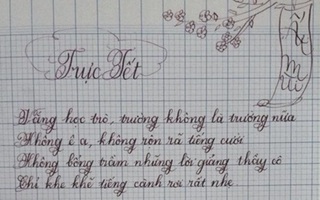 Trực Tết
Vắng học trò, trường không là trường nữa
Không ê a, không rộn rã tiếng cười
Không bổng trầm những lời giảng thầy cô
Chỉ khe khẽ tiếng cành rơi rất nhẹ